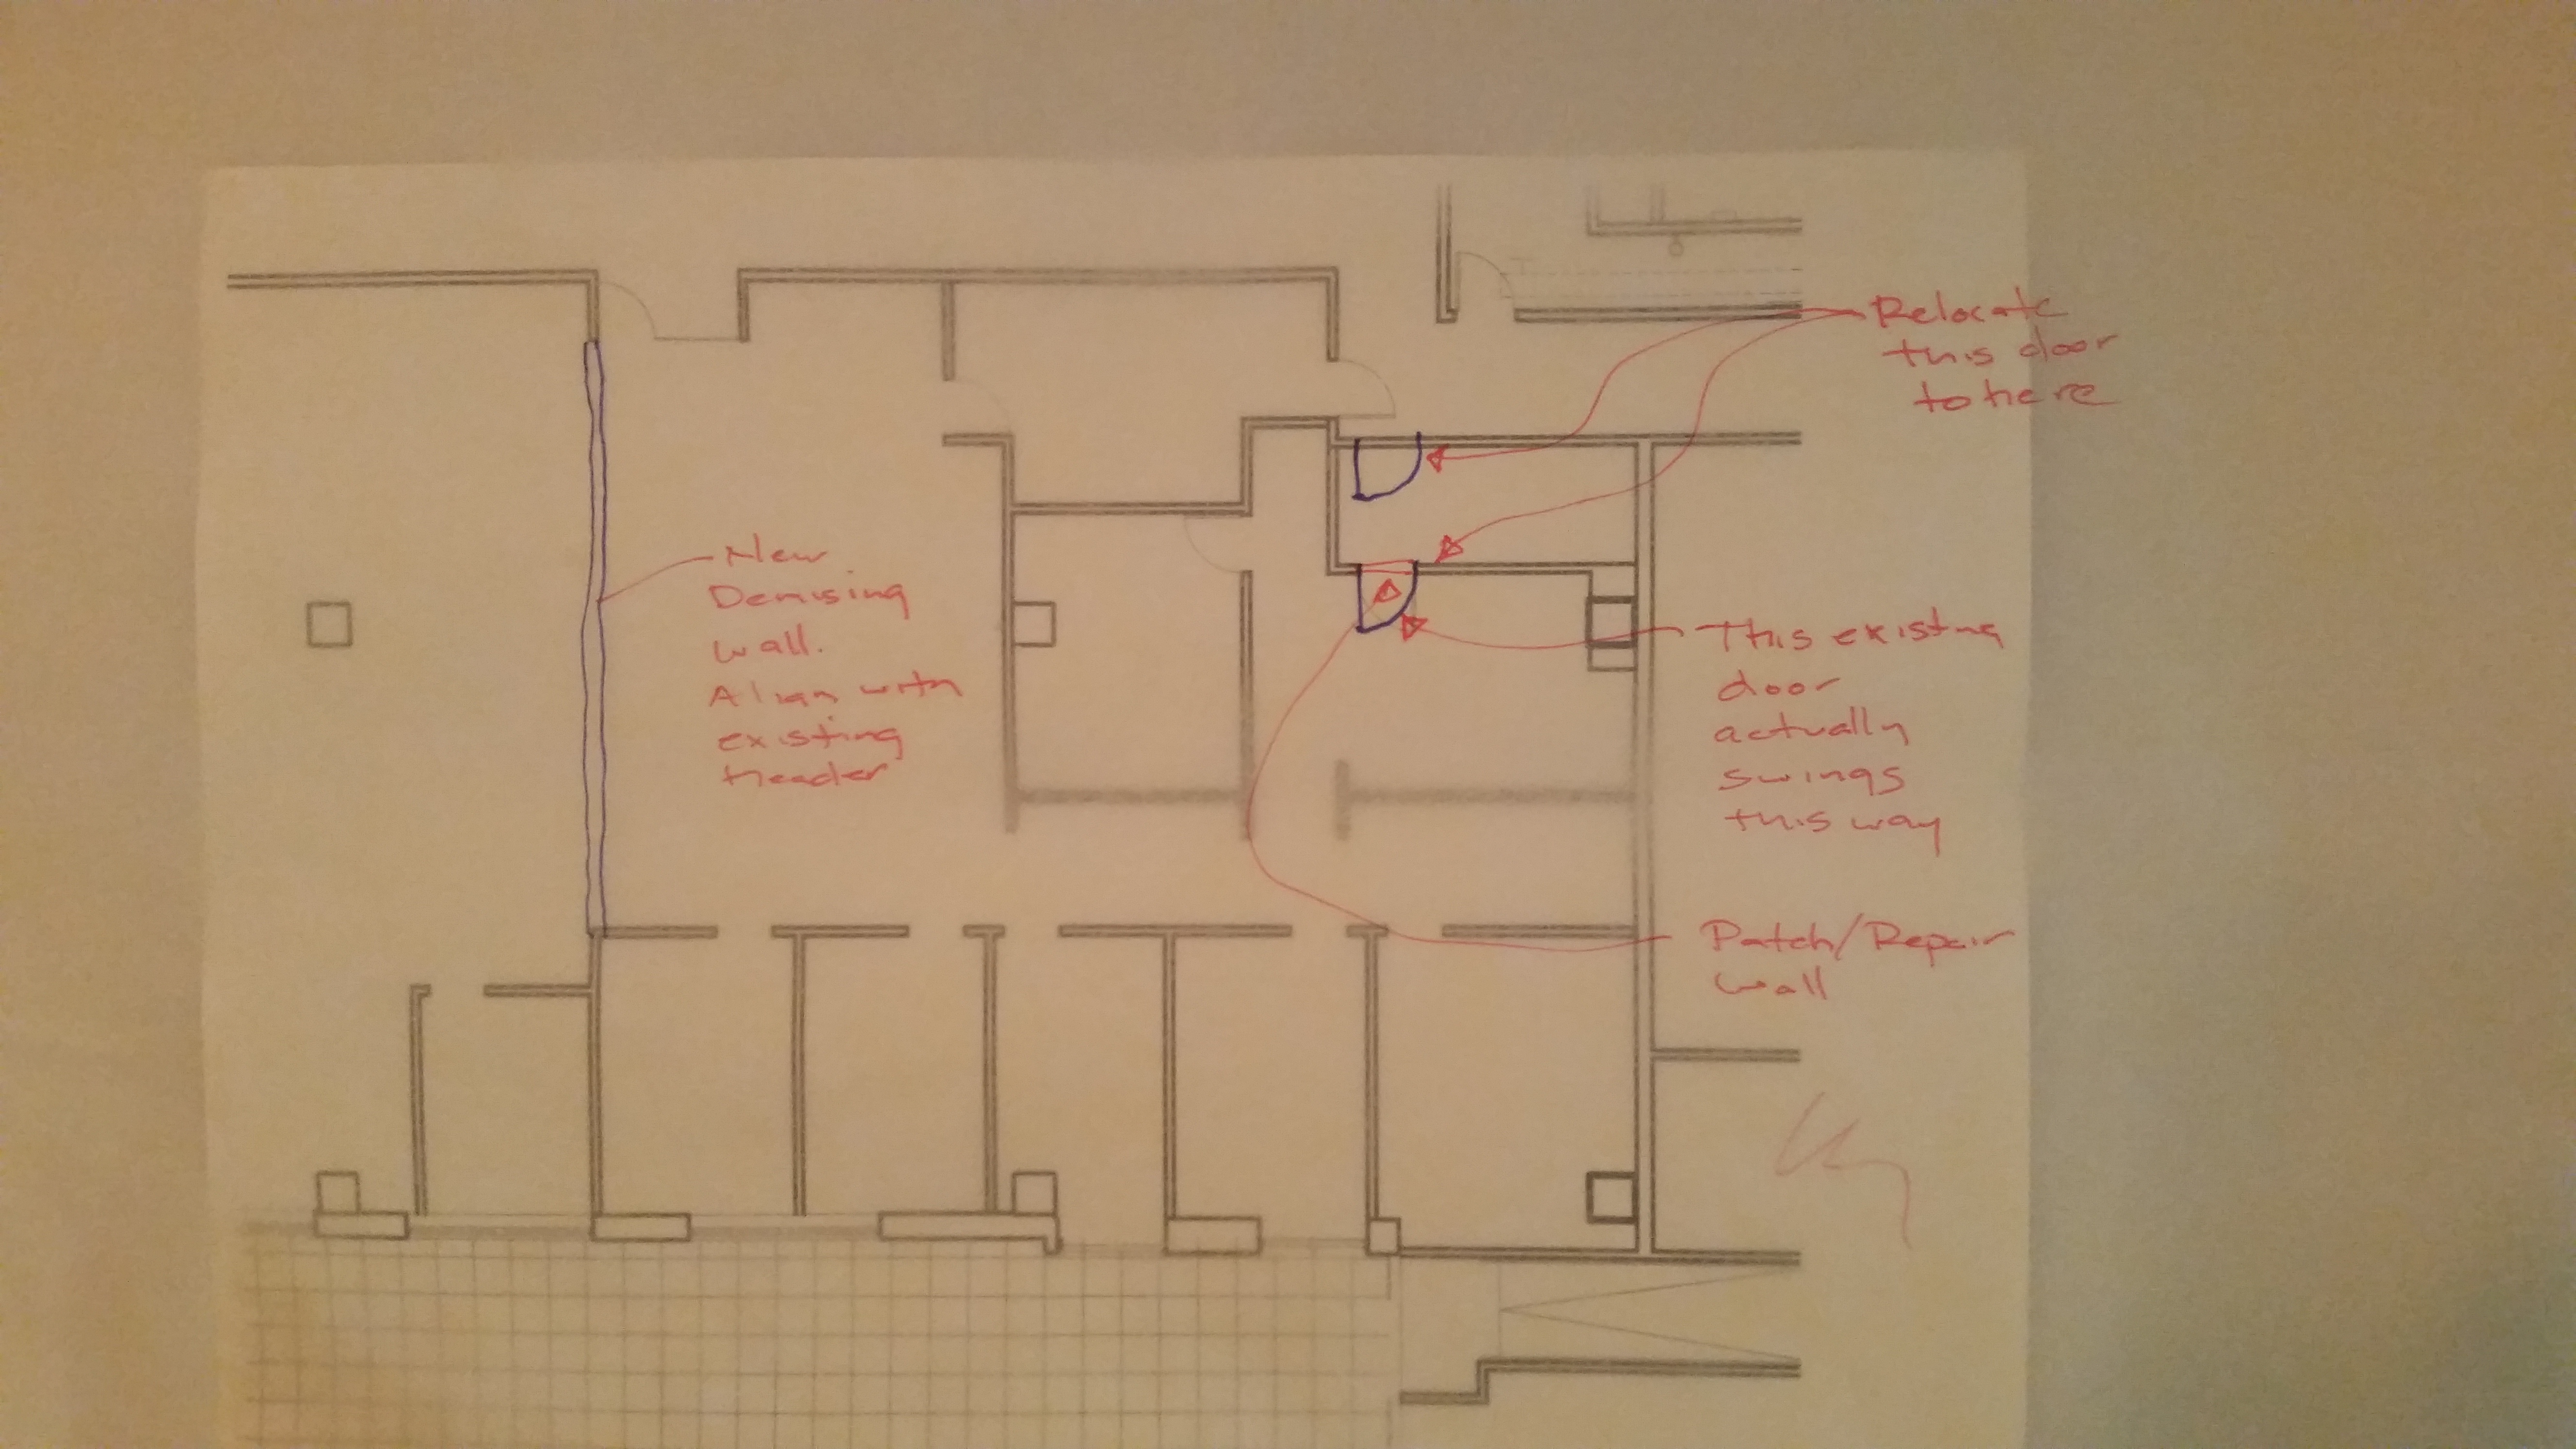 Relocate
this door
to here
New
Demising
wall.
Align with
existing
header
This existing
door
actually
swings
this way
Patch/Repair
wall